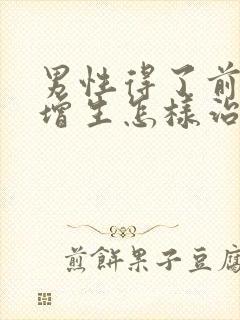 男性得了前
增生怎樣治
煎餅果子豆腐